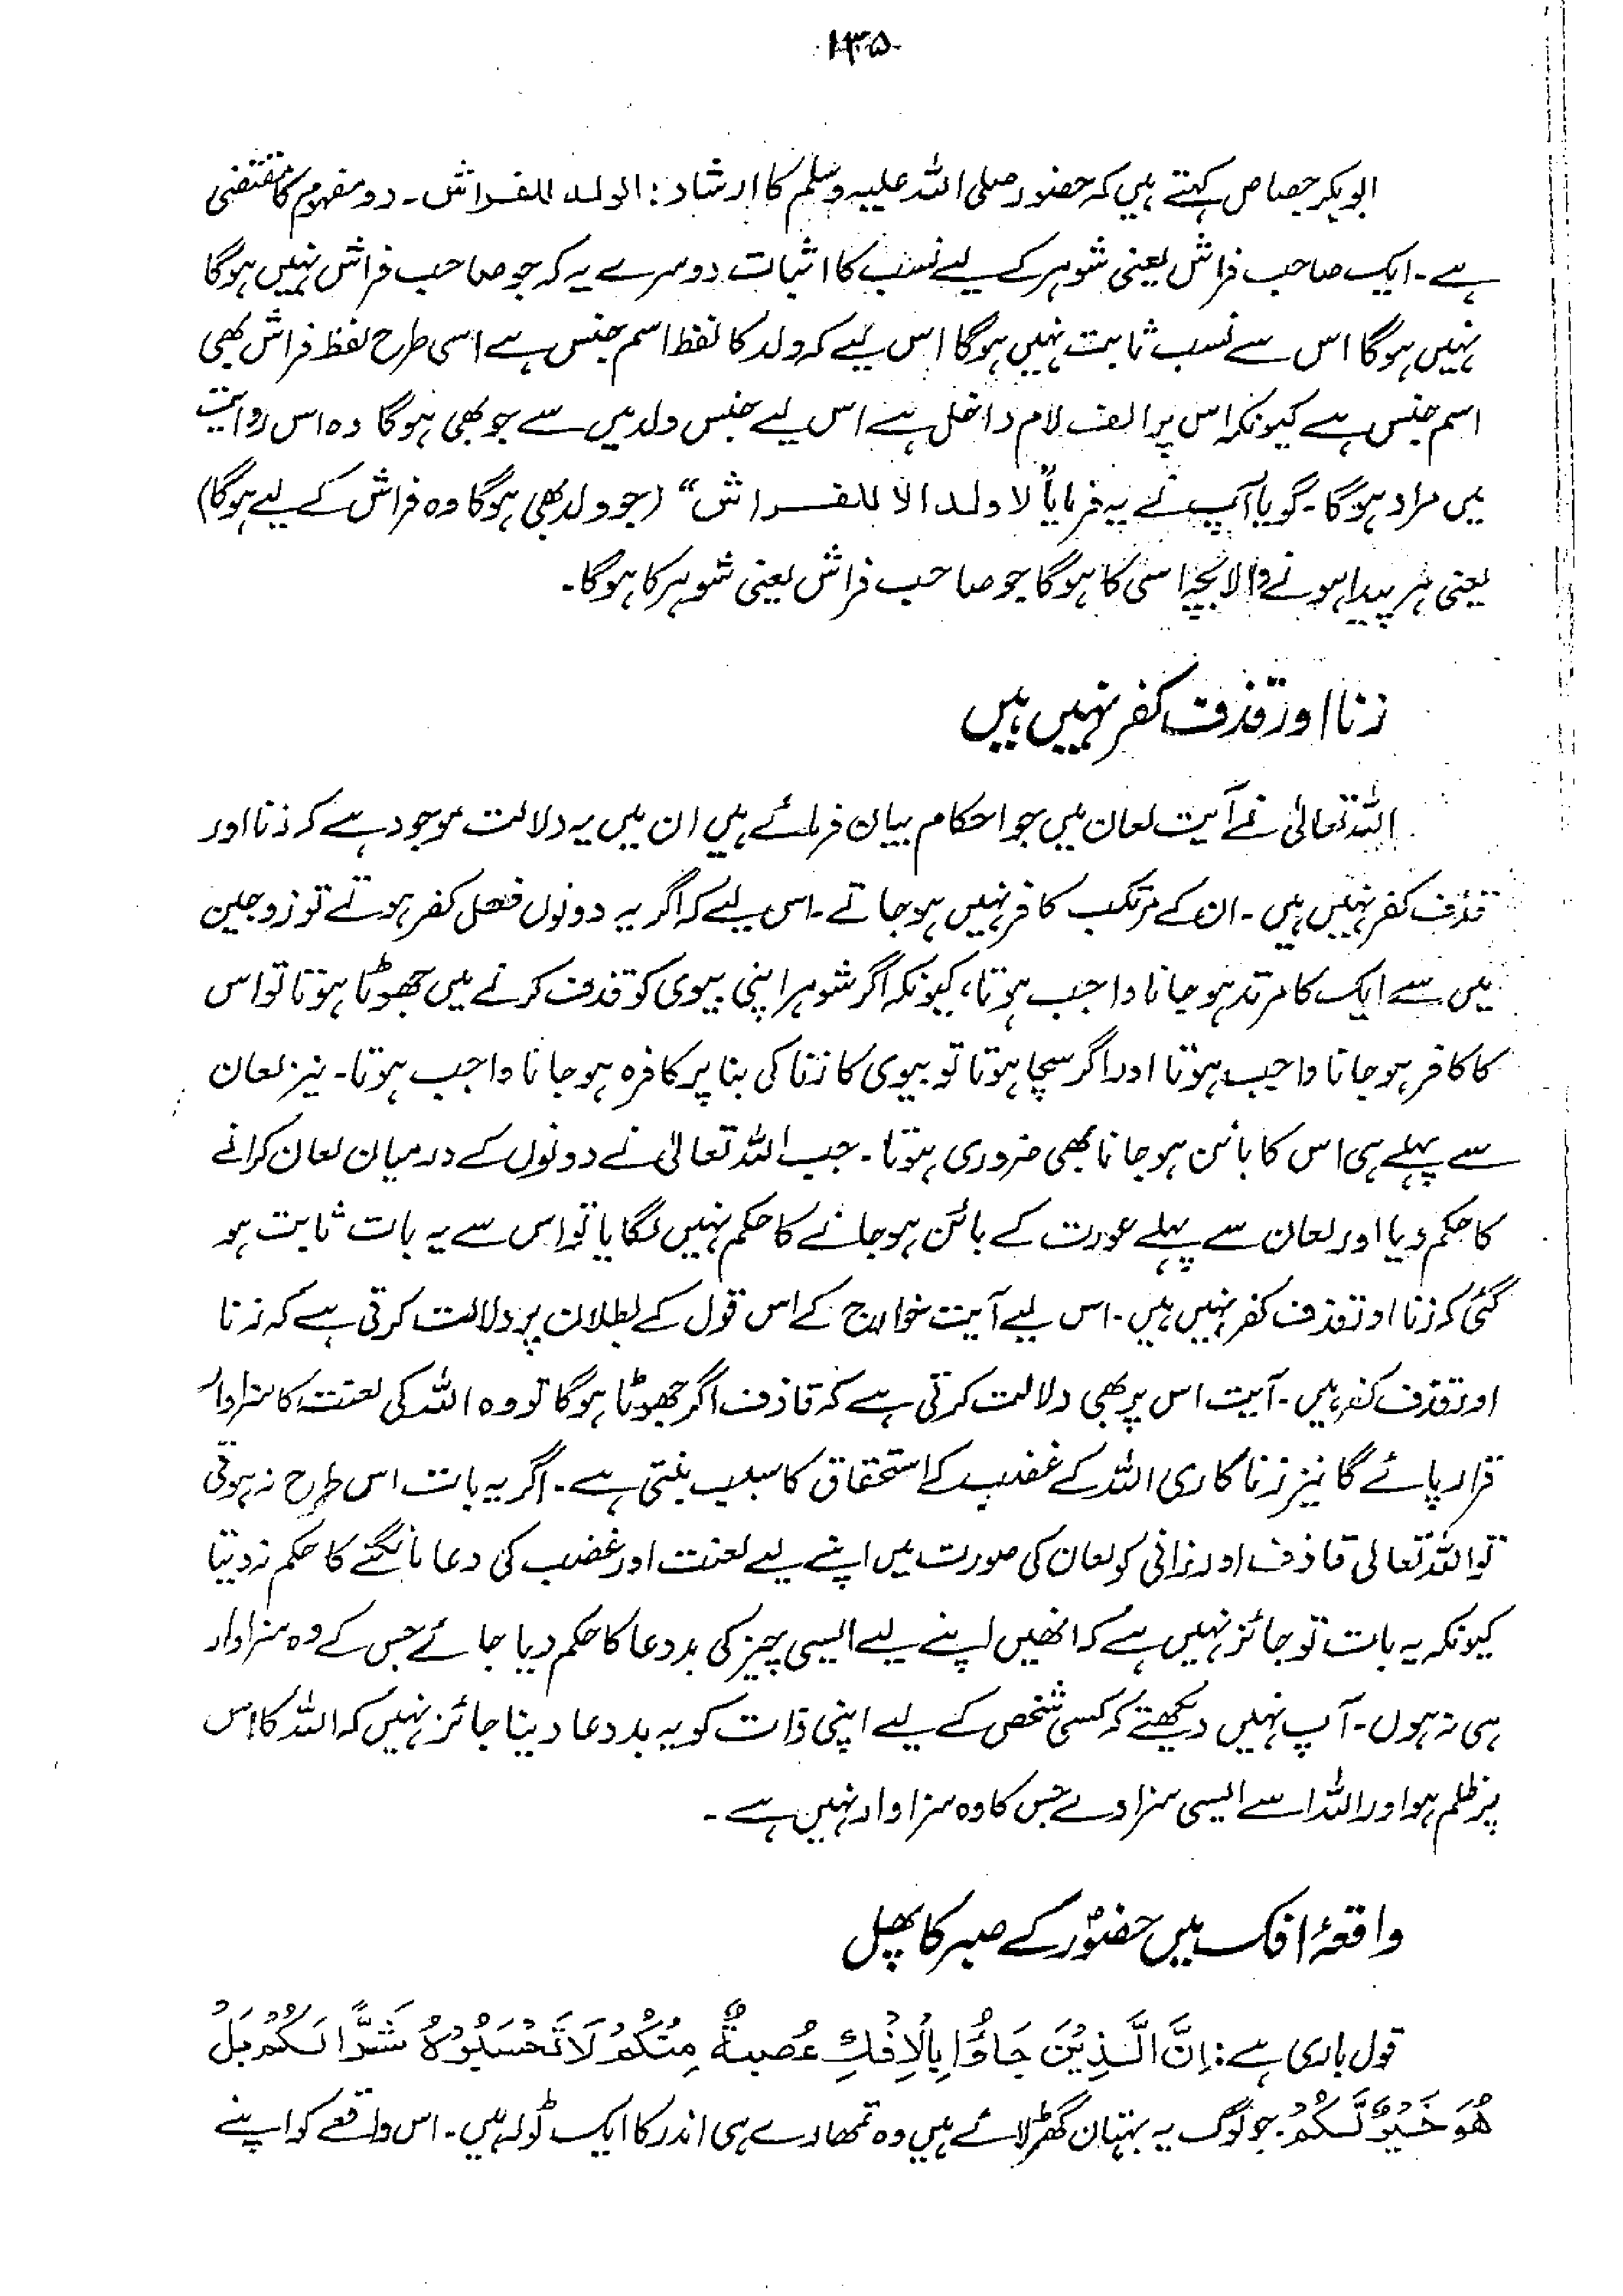 ۱۳۵
ابوبکر جصاص کہتے ہیں کہ حضور صلی اللہ علیہ وسلم کا ارشاد: الولد للفراش۔ دو مفہوم کا مقتضی
ہے۔ ایک صاحب فراش یعنی شوہر کے لیے نسب کا اثبات دوسرے یہ کہ جو صاحب فراش نہیں ہوگا
نہیں ہوگا اس سے نسب ثابت نہیں ہوگا اس لیے کہ ولد کا لفظ اسم جنس ہے اسی طرح لفظ فراش بھی
اسم جنس ہے کیونکہ اس پر الف لام داخل ہے اس لیے جنس ولد میں سے جو بھی ہوگا وہ اس روایت
میں مراد ہوگا۔ گویا آپ نے یہ فرمایا "لا ولد الا للفراش" (جو ولد بھی ہوگا وہ فراش کے لیے ہوگا)
یعنی ہر پیدا ہونے والا بچہ اسی کا ہوگا جو صاحب فراش یعنی شوہر کا ہوگا۔
زنا اور قذف کفر نہیں ہیں
اللہ تعالیٰ نے آیت لعان میں جو احکام بیان فرمائے ہیں ان میں یہ دلالت موجود ہے کہ زنا اور
قذف کفر نہیں ہیں۔ ان کے مرتکب کافر نہیں ہو جاتے۔ اس لیے کہ اگر یہ دونوں فعل کفر ہوتے تو زوجین
میں سے ایک کا مرتد ہو جانا واجب ہوتا، کیونکہ اگر شوہر اپنی بیوی کو قذف کرنے میں جھوٹا ہوتا تو اس
کا کافر ہو جانا واجب ہوتا اور اگر سچا ہوتا تو بیوی کا زنا کی بنا پر کافرہ ہو جانا واجب ہوتا۔ نیز لعان
سے پہلے ہی اس کا بائن ہو جانا بھی ضروری ہوتا۔ جب اللہ تعالیٰ نے دونوں کے درمیان لعان کرانے
کا حکم دیا اور لعان سے پہلے عورت کے بائن ہو جانے کا حکم نہیں لگایا تو اس سے یہ بات ثابت ہو
گئی کہ زنا اور قذف کفر نہیں ہیں۔ اس لیے آیت خوارج کے اس قول کے بطلان پر دلالت کرتی ہے کہ زنا
اور قذف کفر ہیں۔ آیت اس پر بھی دلالت کرتی ہے کہ قاذف اگر جھوٹا ہوگا تو وہ اللہ کی لعنت کا سزاوار
قرار پائے گا نیز زنا کاری اللہ کے غضب کے استحقاق کا سبب بنتی ہے۔ اگر یہ بات اس طرح نہ ہوتی
تو اللہ تعالیٰ قاذف اور زانی کو لعان کی صورت میں اپنے لیے لعنت اور غضب کی دعا مانگنے کا حکم نہ دیتا
کیونکہ یہ بات تو جائز نہیں ہے کہ انھیں اپنے لیے ایسی چیز کی بددعا کا حکم دیا جائے جس کے وہ سزاوار
ہی نہ ہوں۔ آپ نہیں دیکھتے کہ کسی شخص کے لیے اپنی ذات کو یہ بددعا دینا جائز نہیں کہ اللہ کا اس
پر ظلم ہو اور اللہ اسے ایسی سزا دے جس کا وہ سزاوار نہیں ہے۔
واقعۂ افک میں حضورؐ کے صبر کا پھل
قول باری ہے: اِنَّ الَّذِیْنَ جَآؤُا بِالْاِفْکِ عُصْبَةٌ مِّنْکُمْ لَا تَحْسَبُوْہُ شَرًّا لَّکُمْ بَلْ
ھُوَ خَیْرٌ لَّکُمْ۔ جو لوگ یہ بہتان گھڑ لائے ہیں وہ تمھارے ہی اندر کا ایک ٹولہ ہیں۔ اس واقعے کو اپنے